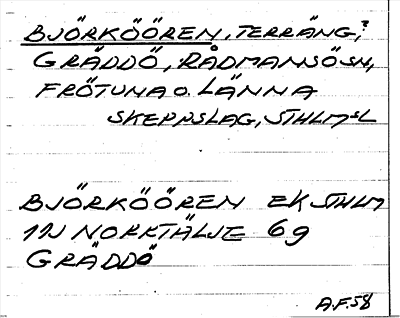 BJÖRKÖÖREN, TERRÄNG,?
GRÄDDÖ, RÅDMANSÖSN,
FRÖTUNA O. LÄNNA
SKEPPSLAG, STHLMSL
BJÖRKÖÖREN EK STHLM
11J NORRTÄLJE 6g
GRÄDDÖ
A.F.58